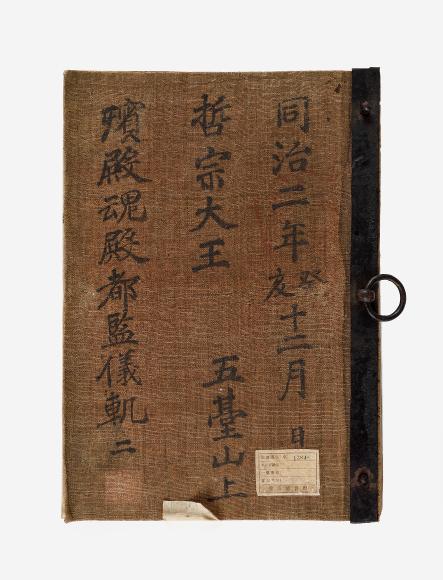 同治二年癸亥十二月 日
哲宗大王 五臺山上
殯殿魂殿都監儀軌 二